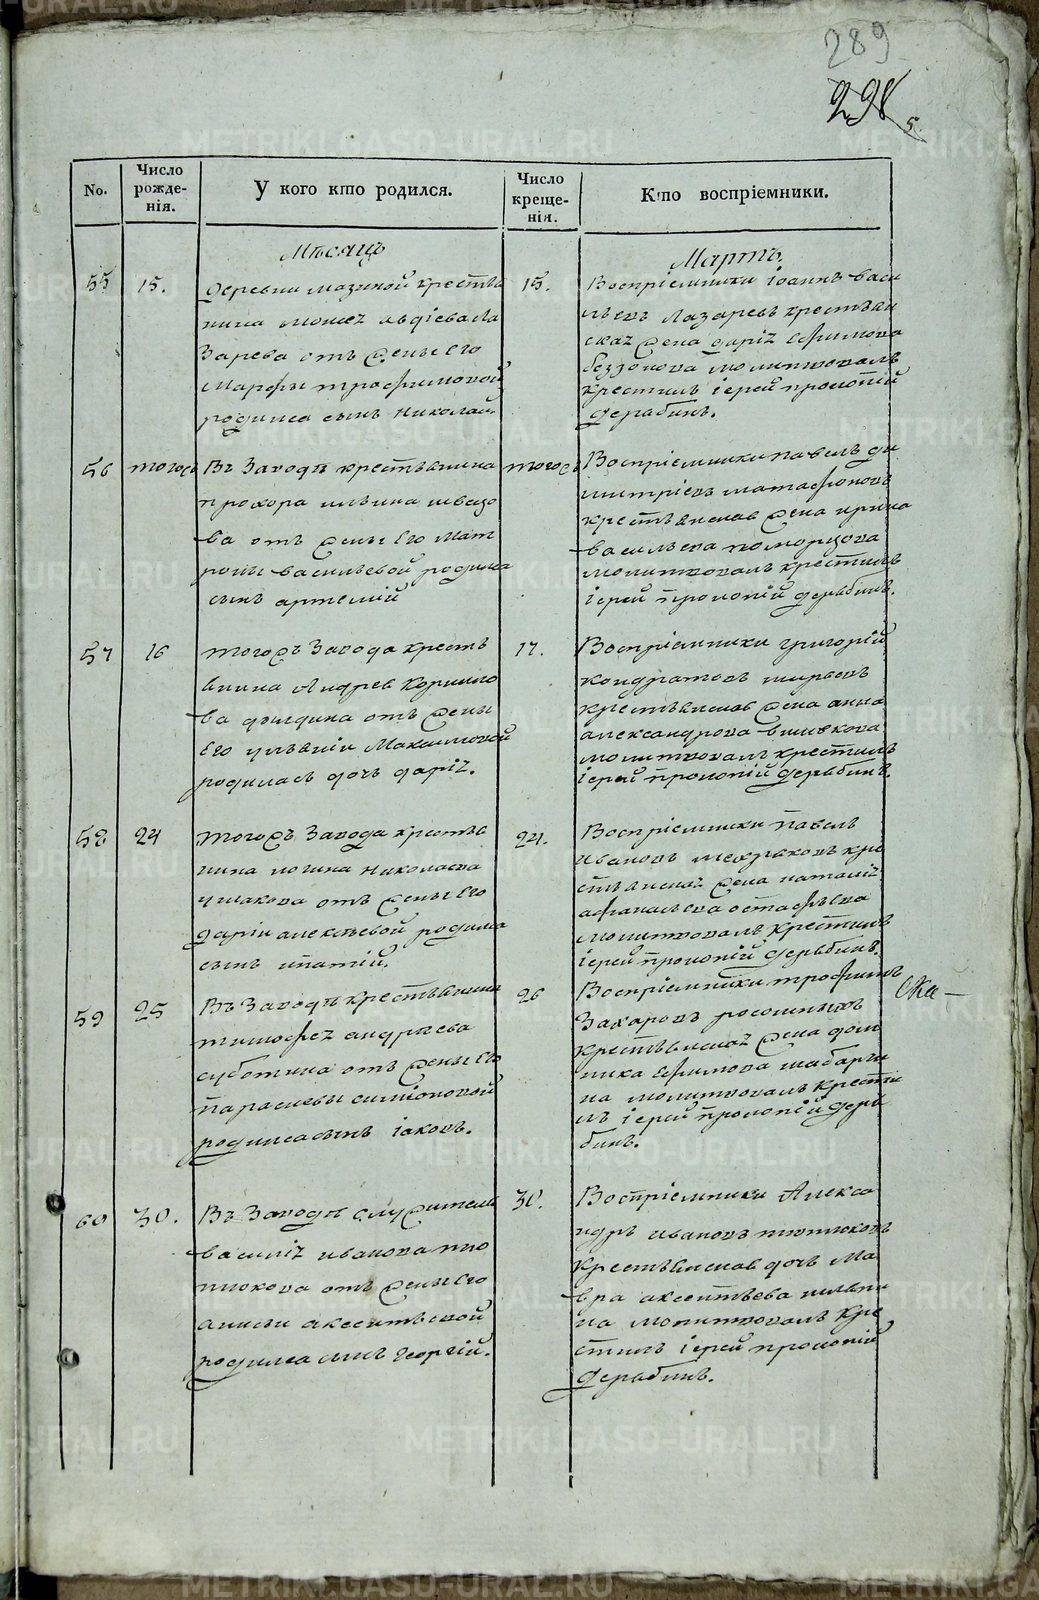 289
298
5.
No.
Число рожде-нія.
У кого кто родился.
Число креще-нія.
Кто воспріемники.
Мѣсяцъ
Мартъ
55
15.
деревни мазиной крестья
нина авдіева ла
зарева отъ жены его
Марфы трофимовой
родился сынъ николай.
15.
Воспріемники іоаннъ васи
льевъ лазаревъ крестьян
ская жена дарія ефимова
молитвовалъ
крестилъ іерей прокопій
дерябинъ.
56
тогожъ
Въ Заводѣ крестьянина
прохора ильина
ва отъ жены его мат
роны васильевой родился
сынъ артемий
тогожъ
Воспріемники павелъ ди
митріевъ матафоновъ
крестьянская жена ирина
васильева поморцова
молитвовалъ крестилъ
іерей прокопій дерябинъ.
57
16
тогожъ Завода кресть
янина Андрея Корнило
ва отъ жены
его уліяніи Максимовой
родилась дочь дарія.
17.
Воспріемники григорій
кондратовъ ширяевъ
крестьянская жена анна
александрова вшивкова
молитвовалъ крестилъ
іерей прокопій дерябинъ.
58
24
тогожъ Завода крестья
нина логина николаева
ушакова отъ жены его
даріи алексѣевой родился
сынъ ипатій.
24.
Воспріемники павелъ
ивановъ кре
стьянская жена наталія
афанасьева остафьева
молитвовалъ крестилъ
іерей прокопій дерябинъ.
59
25
Въ Заводѣ крестьянина
тимофея андрѣева
суботина отъ жены его
параскевы симіоновой
родился сынъ іаковъ.
26
Воспріемники трофимъ
Захаровъ росошныхъ
крестьянская жена дом
ника ефимова шабарчи
на молитвовалъ крести
лъ іерей прокопій деря
бинъ.
60
30.
Въ Заводѣ служителя
василія иванова пию
пиюкова отъ жены его
анисьи аксентьевой
родился сынъ георгій.
30.
Воспріемники Алекса
ндръ ивановъ
крестьянская дочь Ма
вра аксентьева ильи
на молитвовалъ кре
стилъ іерей прокопій
дерябинъ.
METRIKI.GASO-URAL.RU